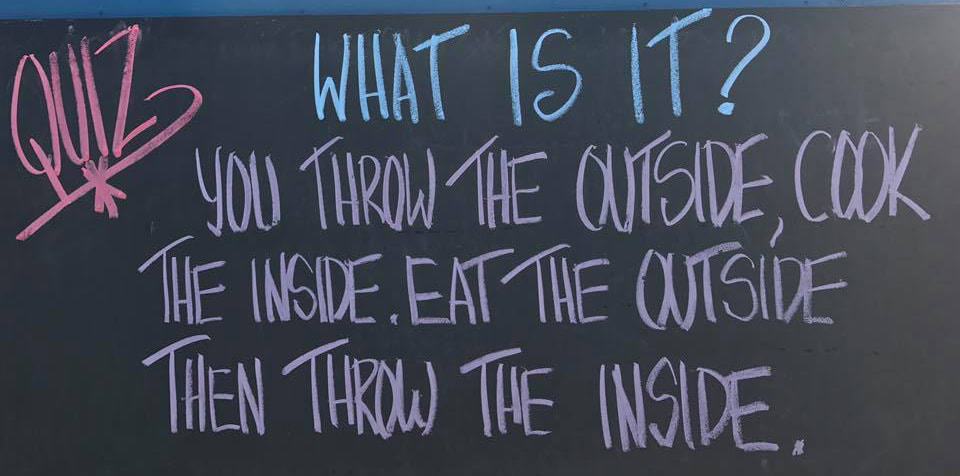 QUIZ
WHAT IS IT?
YOU THROW THE OUTSIDE, COOK
THE INSIDE. EAT THE OUTSIDE
THEN THROW THE INSIDE.